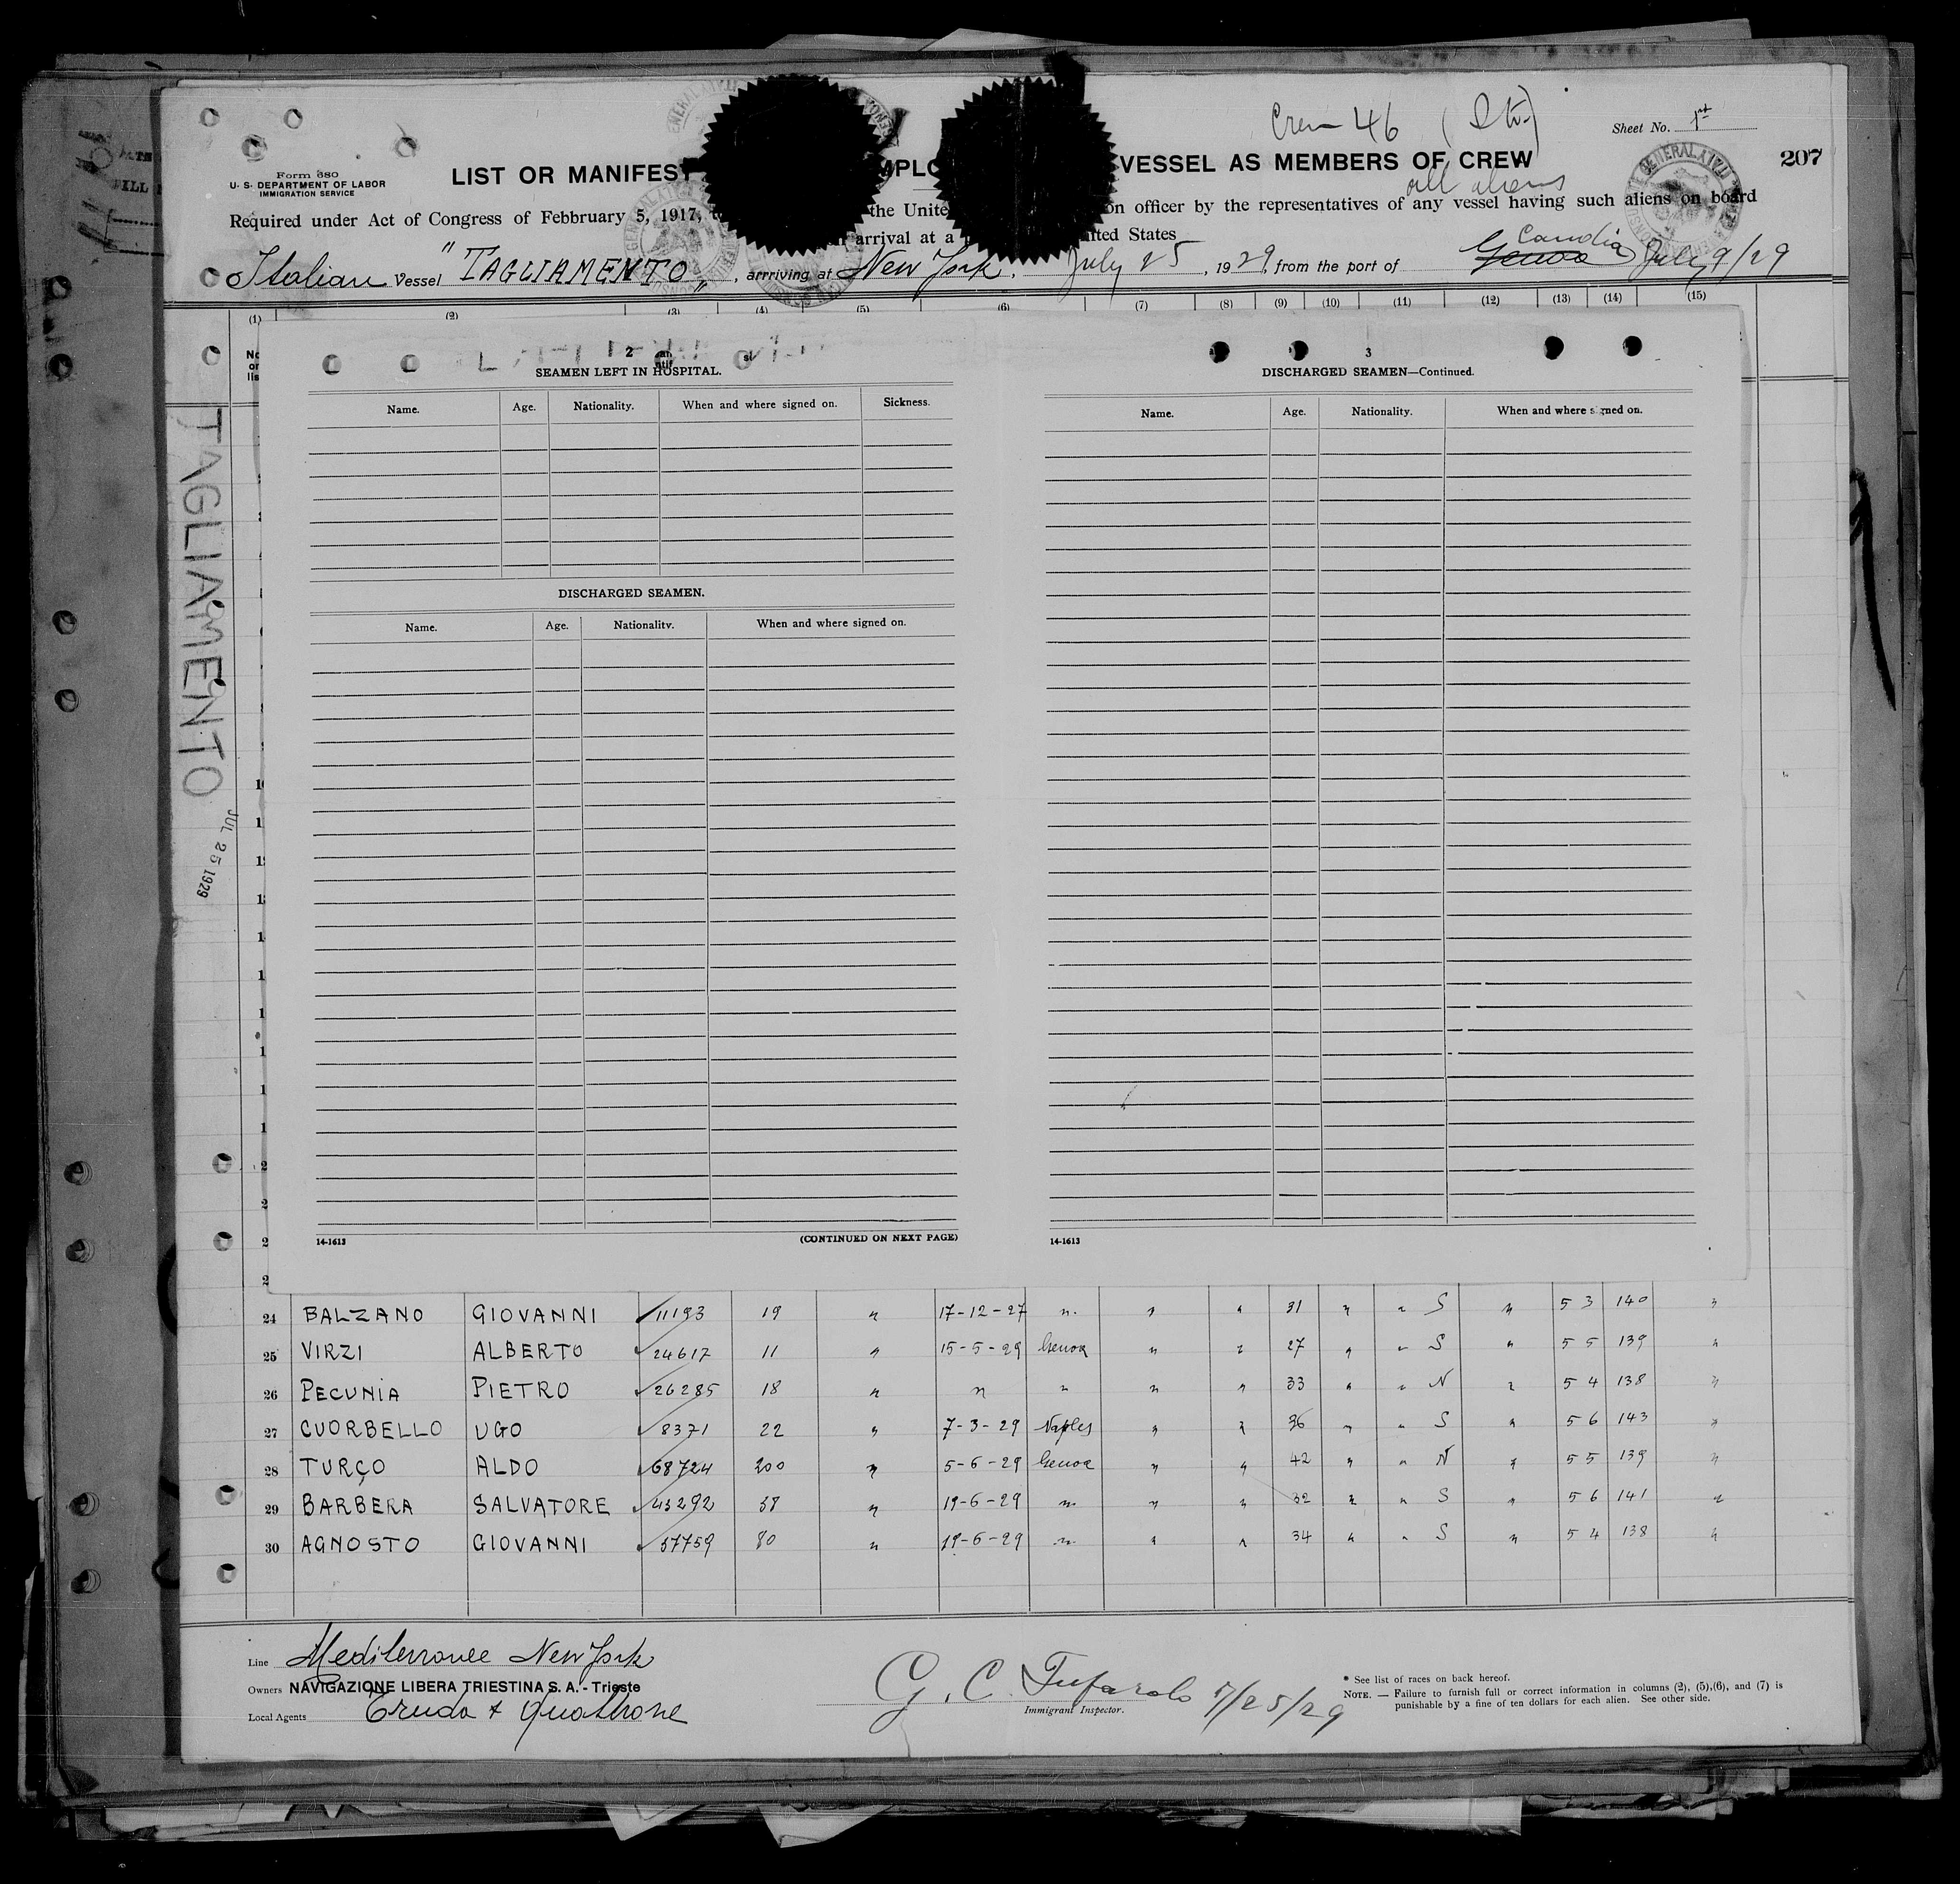 Crew 46
Sheet No. 1st
207
Form 680
U. S. DEPARTMENT OF LABOR
IMMIGRATION SERVICE
LIST OR MANIFEST VESSEL AS MEMBERS OF CREW
all aliens
Required under Act of Congress of Febbruary 5, 1917, the Unite on officer by the representatives of any vessel having such aliens on board
arrival at a ited States
Candia
Italian Vessel "TAGLIAMENTO", arrriving at New York, July 25, 1929, from the port of Genoa July 9/29
(1) (2) (3) (4) (5) (6) (7) (8) (9) (10) (11) (12) (13) (14) (15)
TAGLIAMENTO
JUL 25 1929
2
SEAMEN LEFT IN HOSPITAL.
Name. Age. Nationality. When and where signed on. Sickness.
DISCHARGED SEAMEN.
Name. Age. Nationality. When and where signed on.
14-1613 (CONTINUED ON NEXT PAGE)
3
DISCHARGED SEAMEN—Continued.
Name. Age. Nationality. When and where signed on.
14-1613
24 BALZANO GIOVANNI 11193 19 " 17-12-27 " " " 31 " " S " 5 3 140 "
25 VIRZI ALBERTO 24617 11 " 15-5-29 Genoa " " 27 " " S " 5 5 139 "
26 PECUNIA PIETRO 26285 18 " " " " " 33 " " N " 5 4 138 "
27 CUORBELLO UGO 8371 22 " 7-3-29 Naples " " 36 " " S " 5 6 143 "
28 TURCO ALDO 68724 200 " 5-6-29 Genoa " " 42 " " N " 5 5 139 "
29 BARBERA SALVATORE 43292 38 " 19-6-29 " " " 32 " " S " 5 6 141 "
30 AGNOSTO GIOVANNI 57759 80 " 19-6-29 " " " 34 " " S " 5 4 138 "
Line Mediterranee New York
Owners NAVIGAZIONE LIBERA TRIESTINA S. A. - Trieste
Local Agents
G. C. Tufarolo 7/25/29
Immigrant Inspector.
* See list of races on back hereof.
NOTE. — Failure to furnish full or correct information in columns (2), (5),(6), and (7) is
punishable by a fine of ten dollars for each alien. See other side.